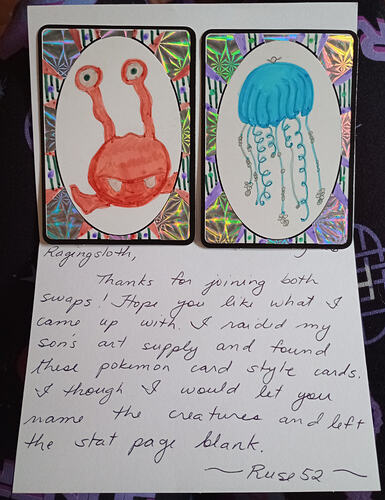 Ragingsloth,
Thanks for joining both
swaps! Hope you like what I
came up with. I raided my
son's art supply and found
these pokemon card style cards.
I though I would let you
name the creatures and left
the stat page blank.
~ Ruse52 ~